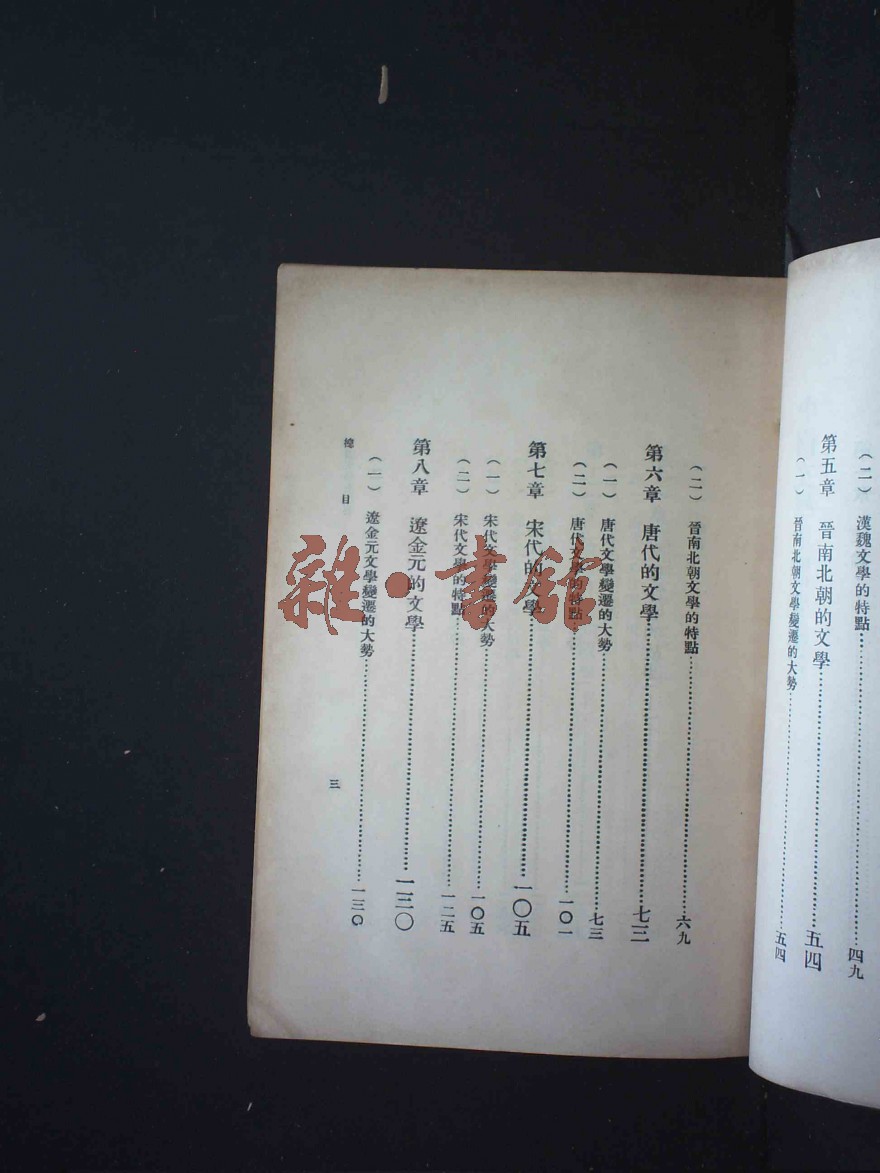 （二）　漢魏文學的特點……四九
第五章　晉南北朝的文學……五四
（一）　晉南北朝文學變遷的大勢……五四
（二）　晉南北朝文學的特點……六九
第六章　唐代的文學……七三
（一）　唐代文學變遷的大勢……七三
（二）　唐代文學的特點……一〇一
第七章　宋代的文學……一〇五
（一）　宋代文學變遷的大勢……一〇五
（二）　宋代文學的特點……一二五
第八章　遼金元的文學……一三〇
（一）　遼金元文學變遷的大勢……一三〇
總目　三
雜·書館